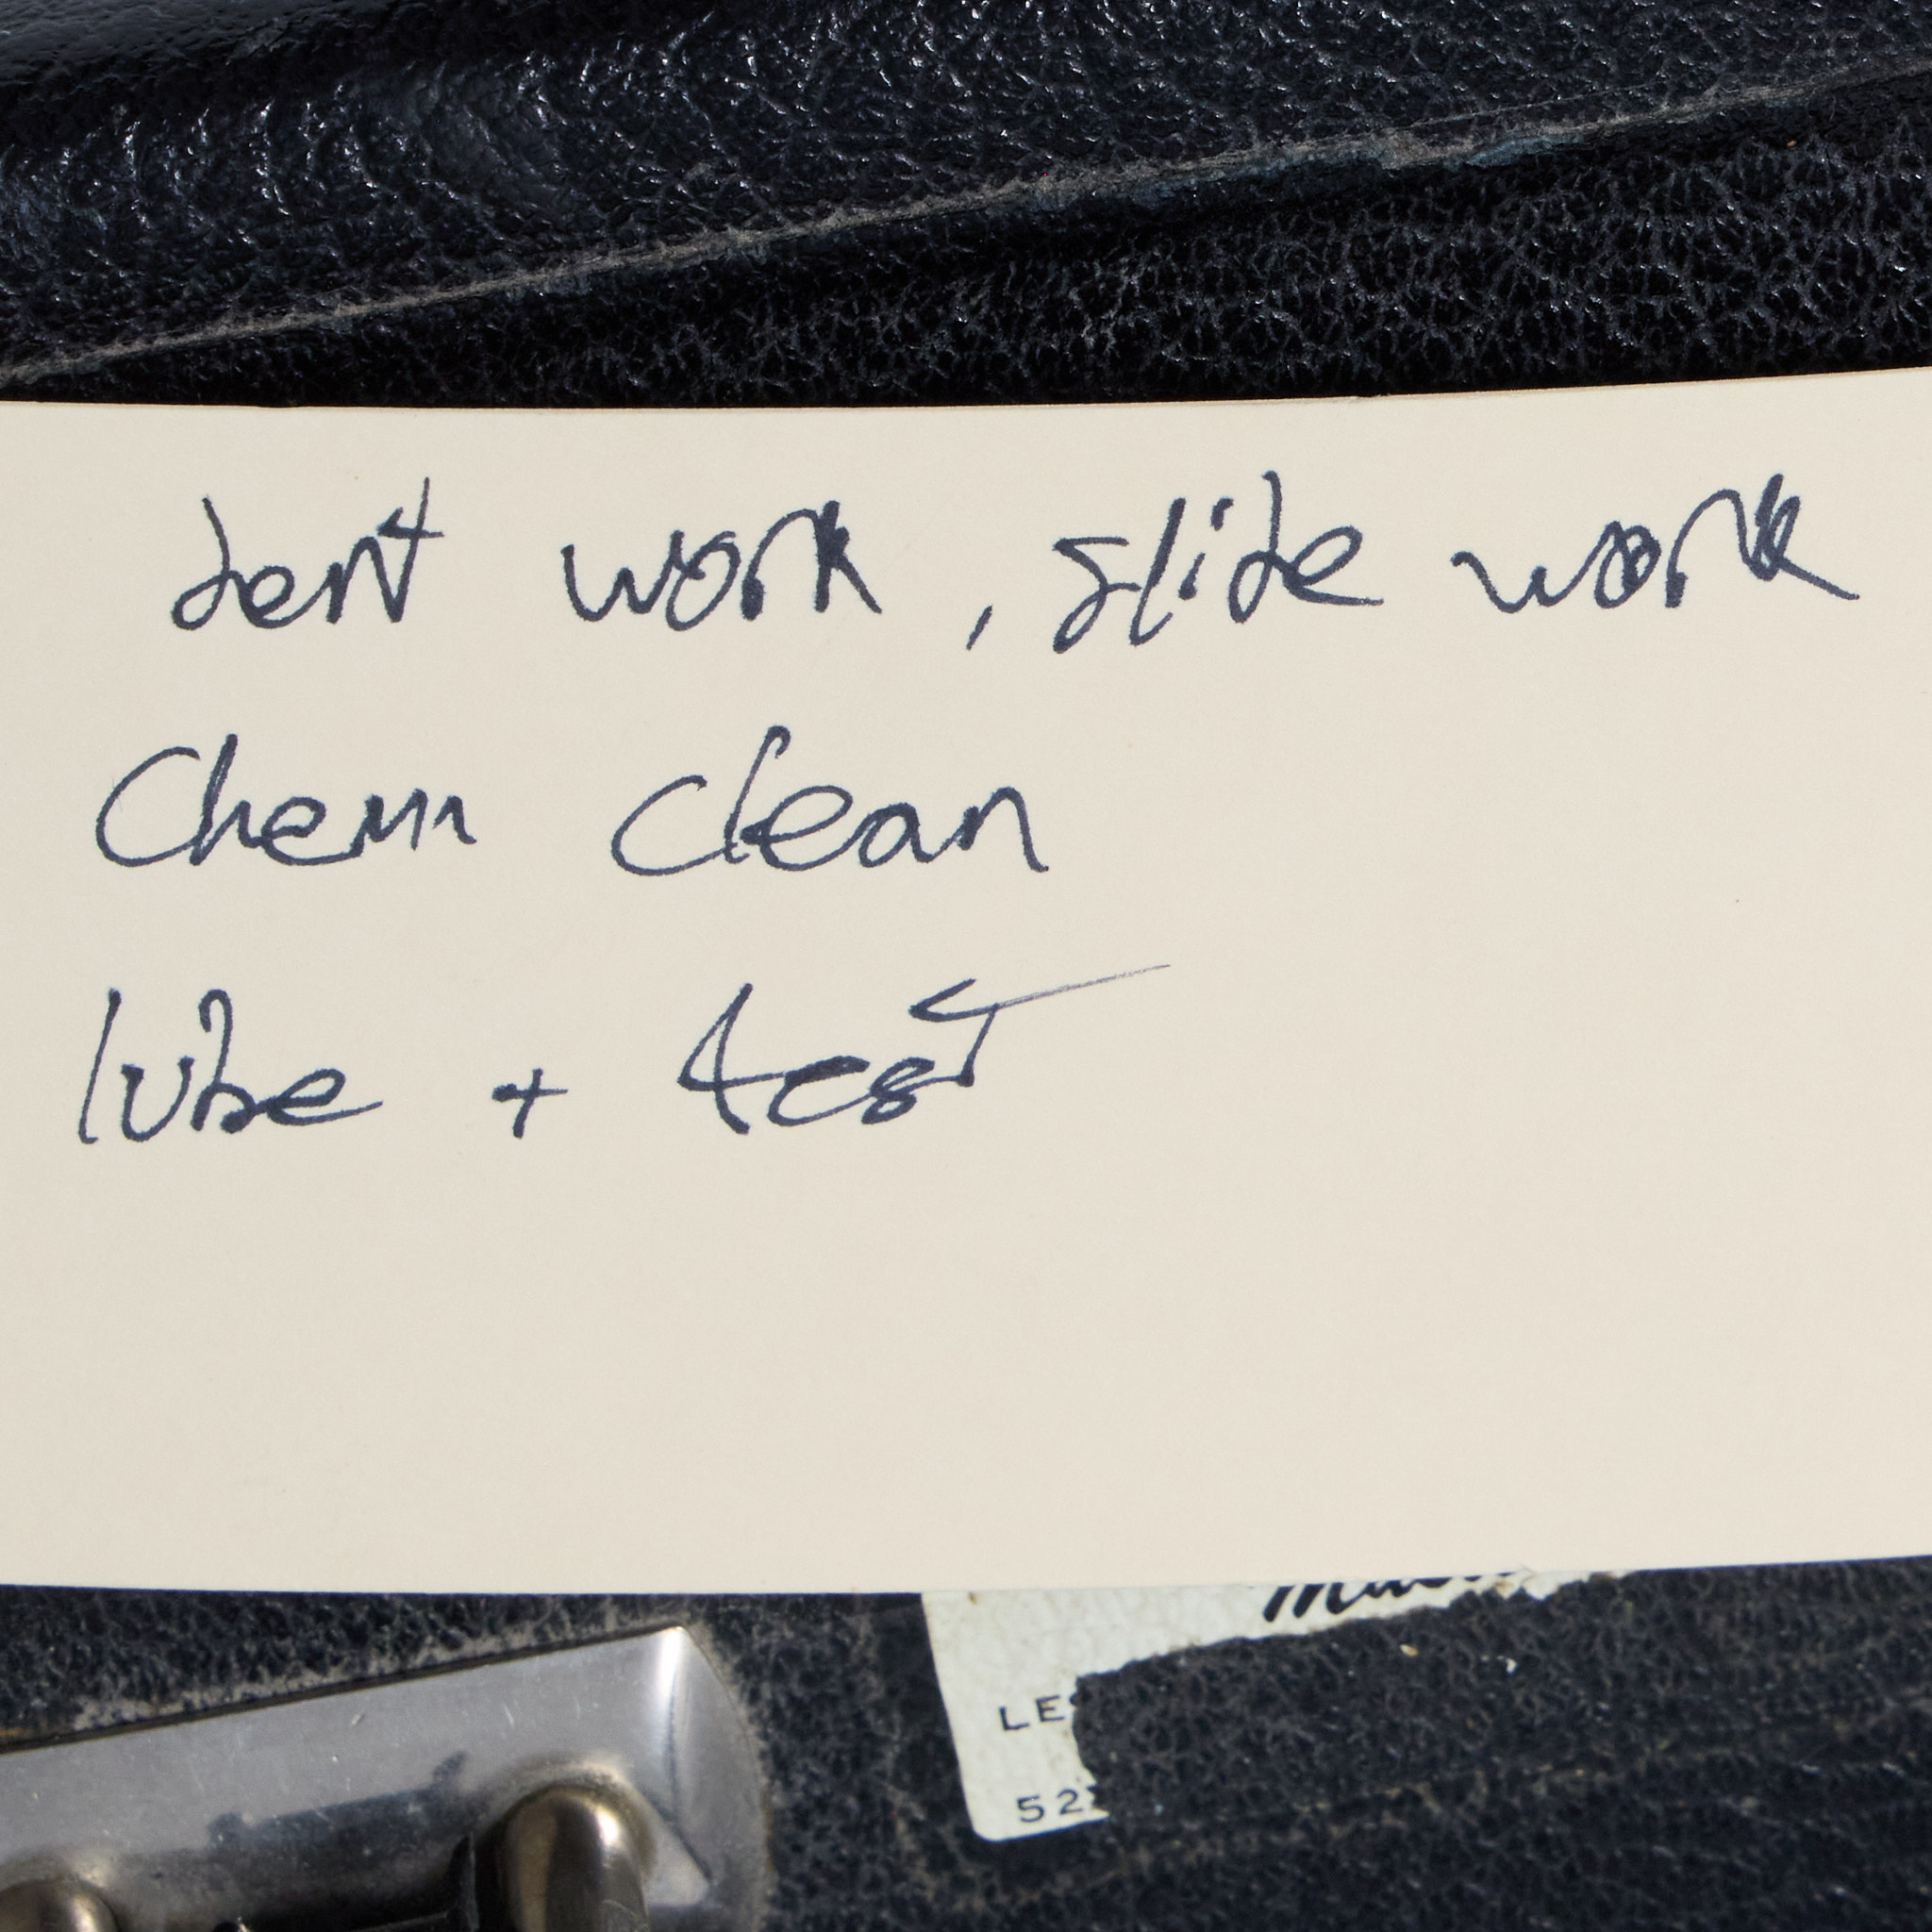 dent work, slide work
Chem clean
lube + test
LES
52